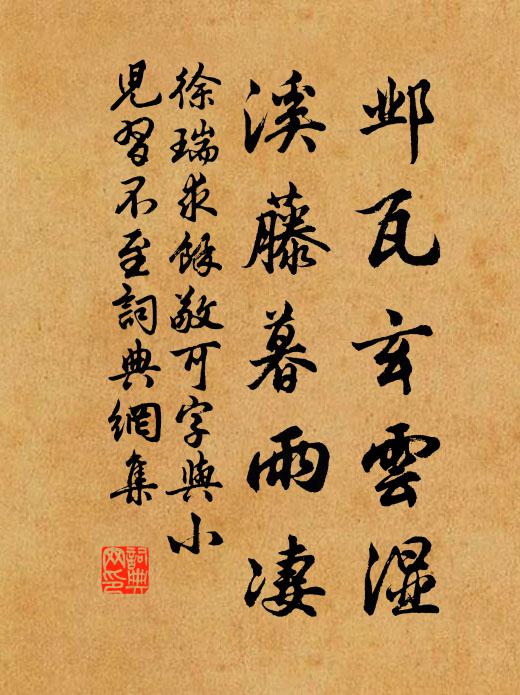 邺瓦玄雲湿
溪藤暮雨凄
徐瑞求餘敬可字與小
兒習不至詞典網集
詞典网印